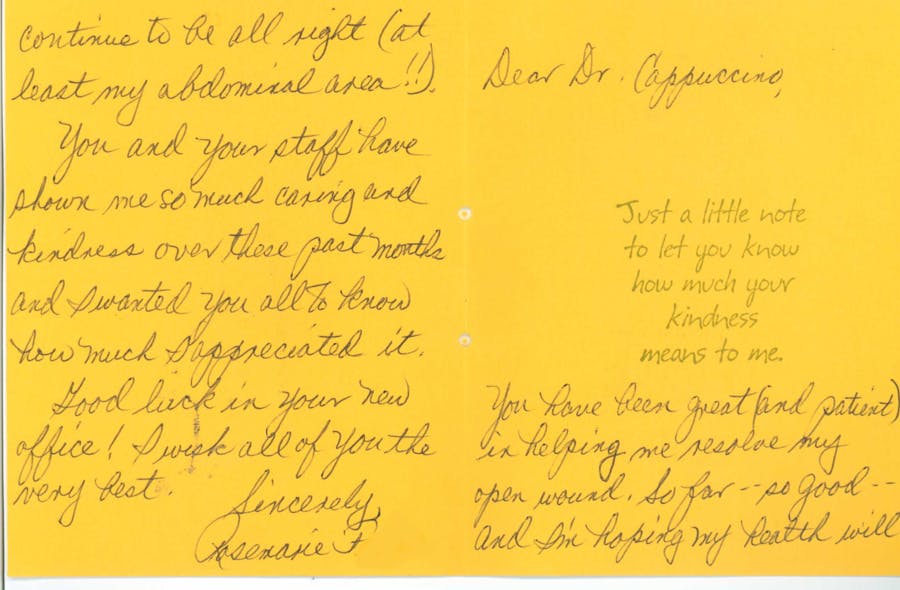 Dear Dr. Cappuccino,
Just a little note
to let you know
how much your
kindness
means to me.
You have been great (and patient)
in helping me resolve my
open wound. So far -- so good --
and I'm hoping my health will
continue to be all right (at
least my abdominal area!!).
You and your staff have
shown me so much caring and
kindness over these past months
and I wanted you all to know
how much I appreciated it.
Good luck in your new
office! I wish all of you the
very best.
Sincerely,
Rosemarie F